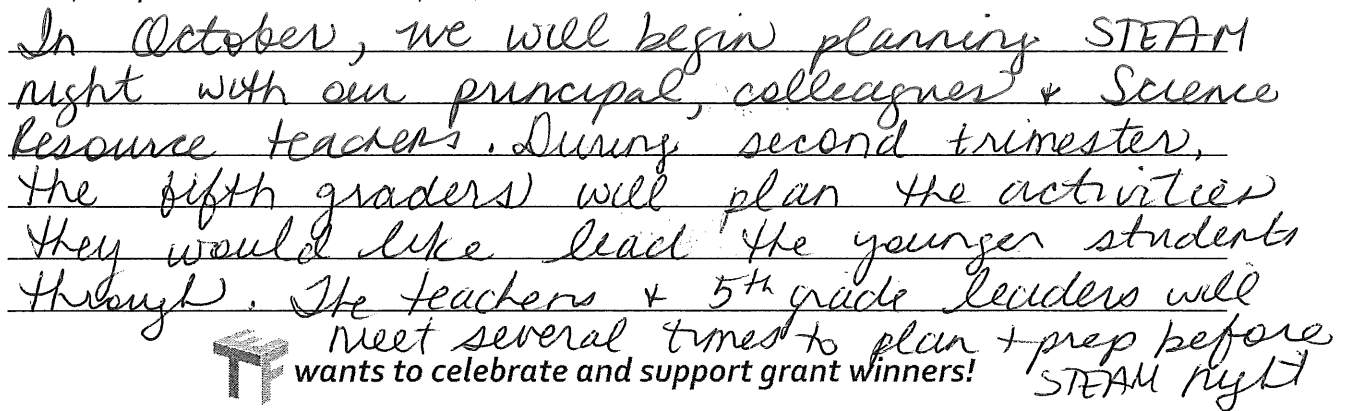 In October, we will begin planning STEAM
night with our principal, colleagues & Science
Resource teachers. During second trimester,
the fifth graders will plan the activities
they would like lead the younger students
through. The teachers & 5th grade leaders will
meet several times to plan + prep before
STEAM night
TEF wants to celebrate and support grant winners!